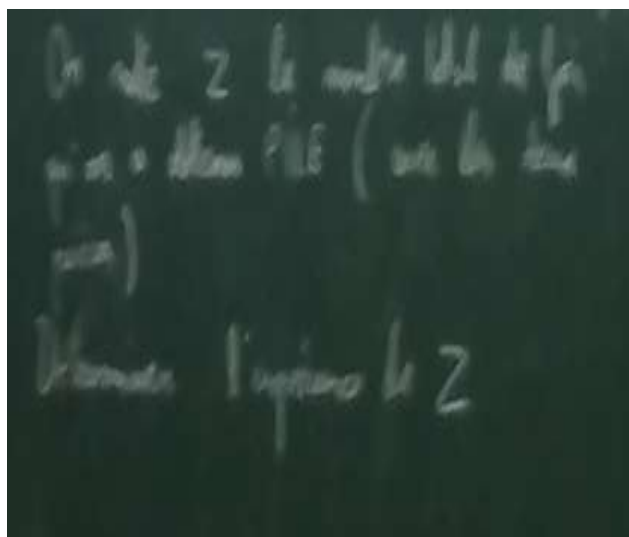 On note Z le nombre total de fois
qu'on a obtenu PILE ( avec les deux
pièces)
Déterminer l'espérance de Z